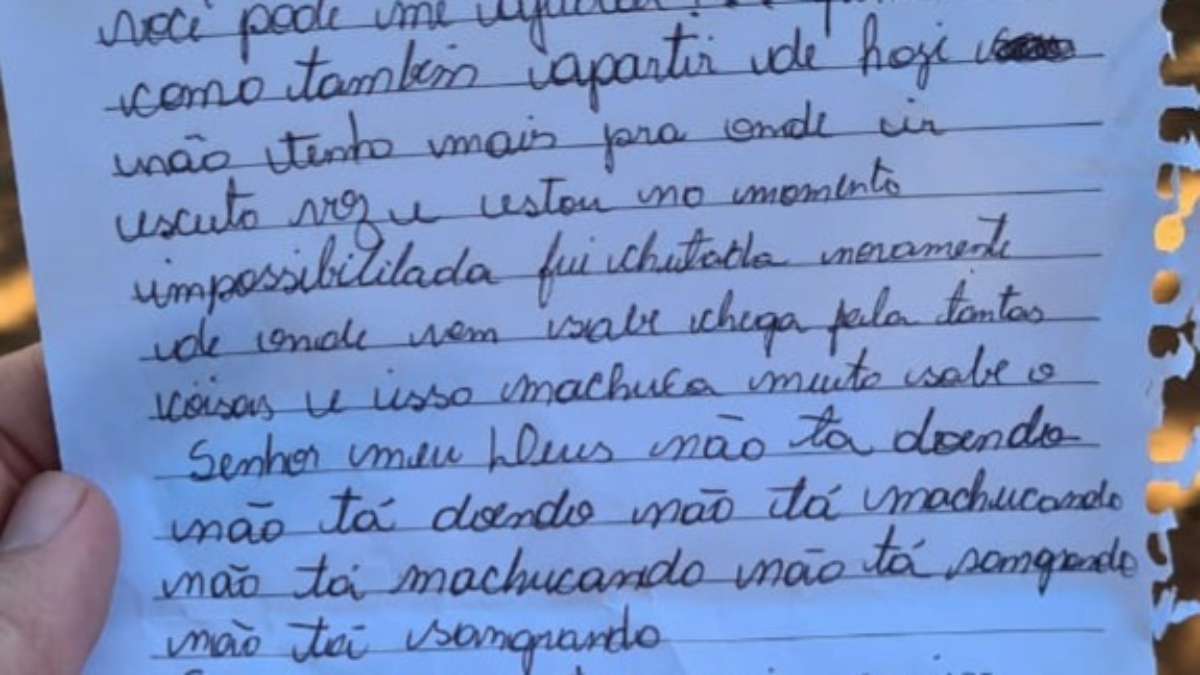 você pode me
como também apartir de hoji
não tenho mais pra onde ir
escuto voz e estou no momento
impossibililada fui chutada novamente
de onde vem sabe chega fala tantas
coisas e isso machuca muito sabe o
Senhor meu Deus não ta doendo
não tá doendo não tá machucando
não tá machucando não tá sangrando
não tá sangrando